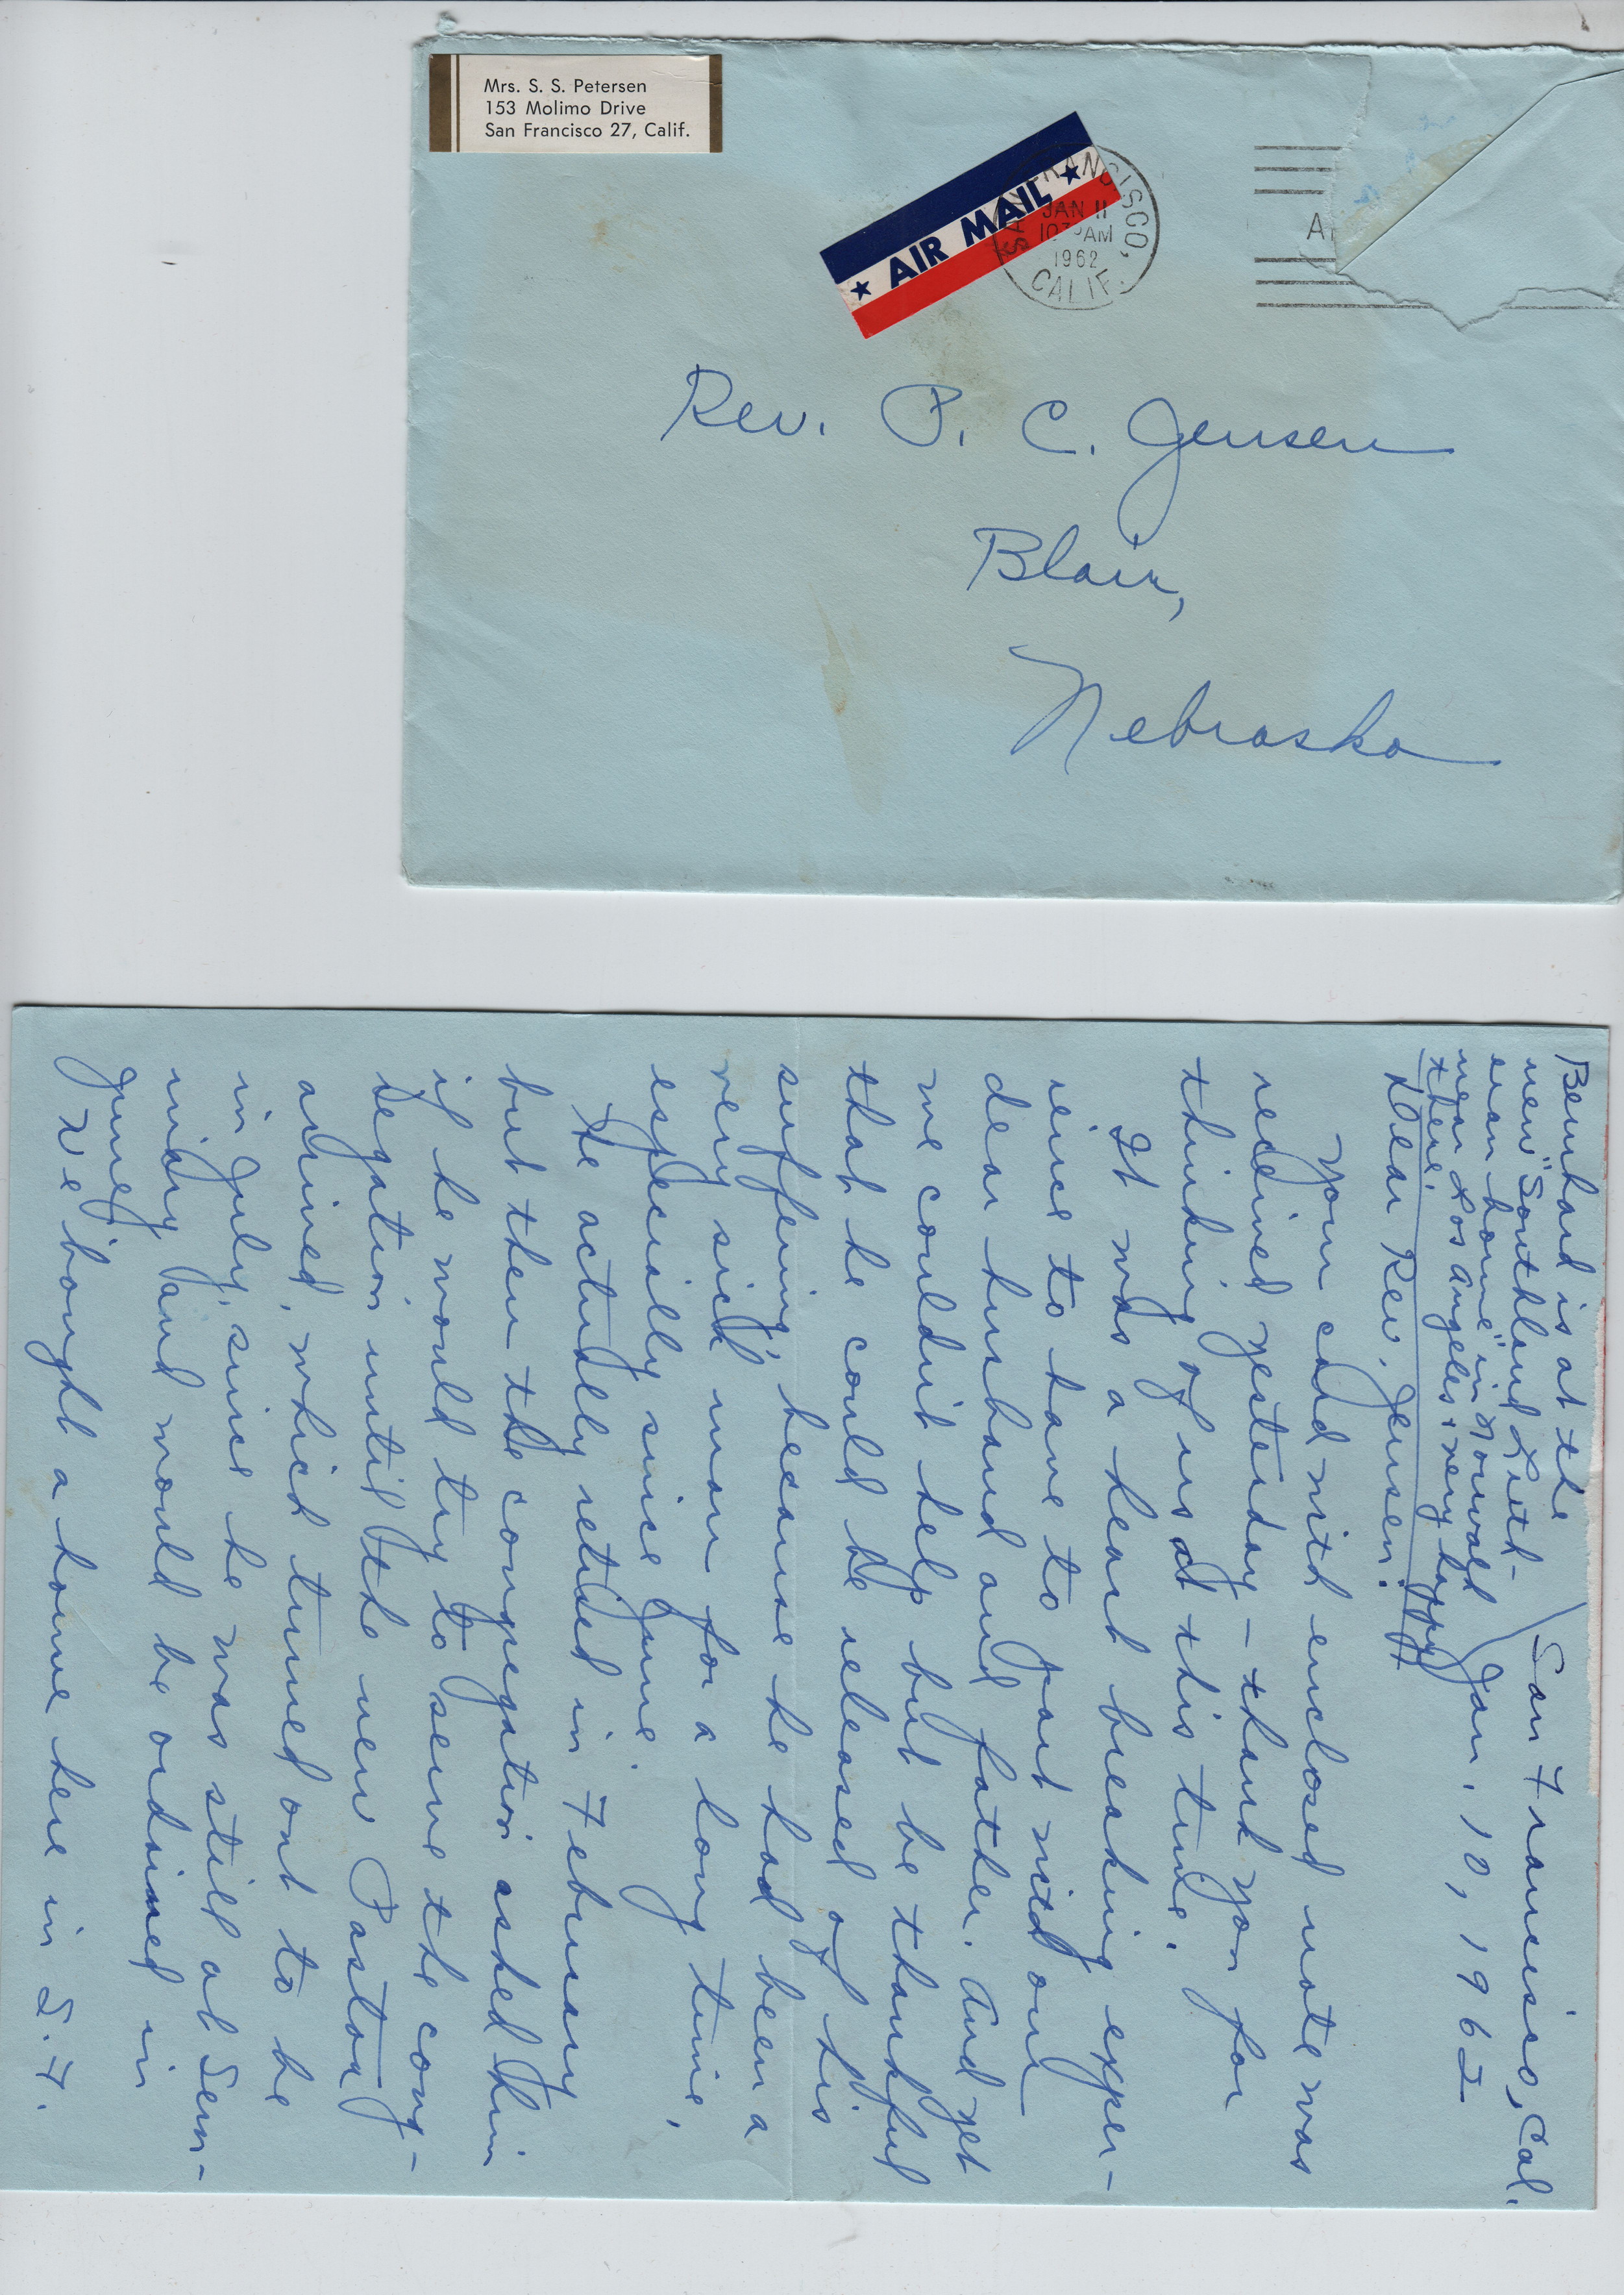 Mrs. S. S. Petersen
153 Molimo Drive
San Francisco 27, Calif.
AIR MAIL
SAN FRANCISCO,
JAN 11
10 30 AM
1962
CALIF.
Rev. P. C. Jensen
Blair,
Nebraska
Bernhard is at the
new "Southland Luth-
eran home" in Norwalk
near Los Angeles, very happy
there.
San Francisco, Cal.
Jan. 10, 1962
Dear Rev. Jensen:
Your card with enclosed note was
recieved yesterday - thank you for
thinking of us at this time.
It was a heart breaking exper-
ience to have to part with our
dear husband and father. And yet
we couldn't help but be thankful
that he could be released of his
suffering, because he had been a
very sick man for a long time,
especially since June.
He actually retired in February
but then the congregation asked him
if he would try to serve the cong-
regation until the new Pastor
arrived, which turned out to be
in July, since he was still at Sem-
inary and would be ordained in
June.
We bought a home here in S. F.